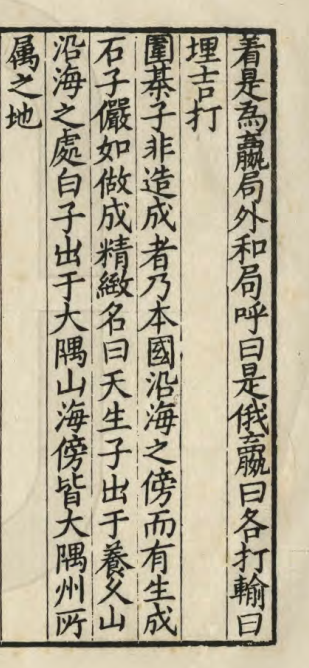 着是為贏局外和局呼曰是俄贏曰各打輸曰
埋吉打
圍棊子非造成者乃本國沿海之傍而有生成
石子儼如做成精緻名曰天生子出于養久山
沿海之處白子出于大隅山海傍皆大隅州所
属之地